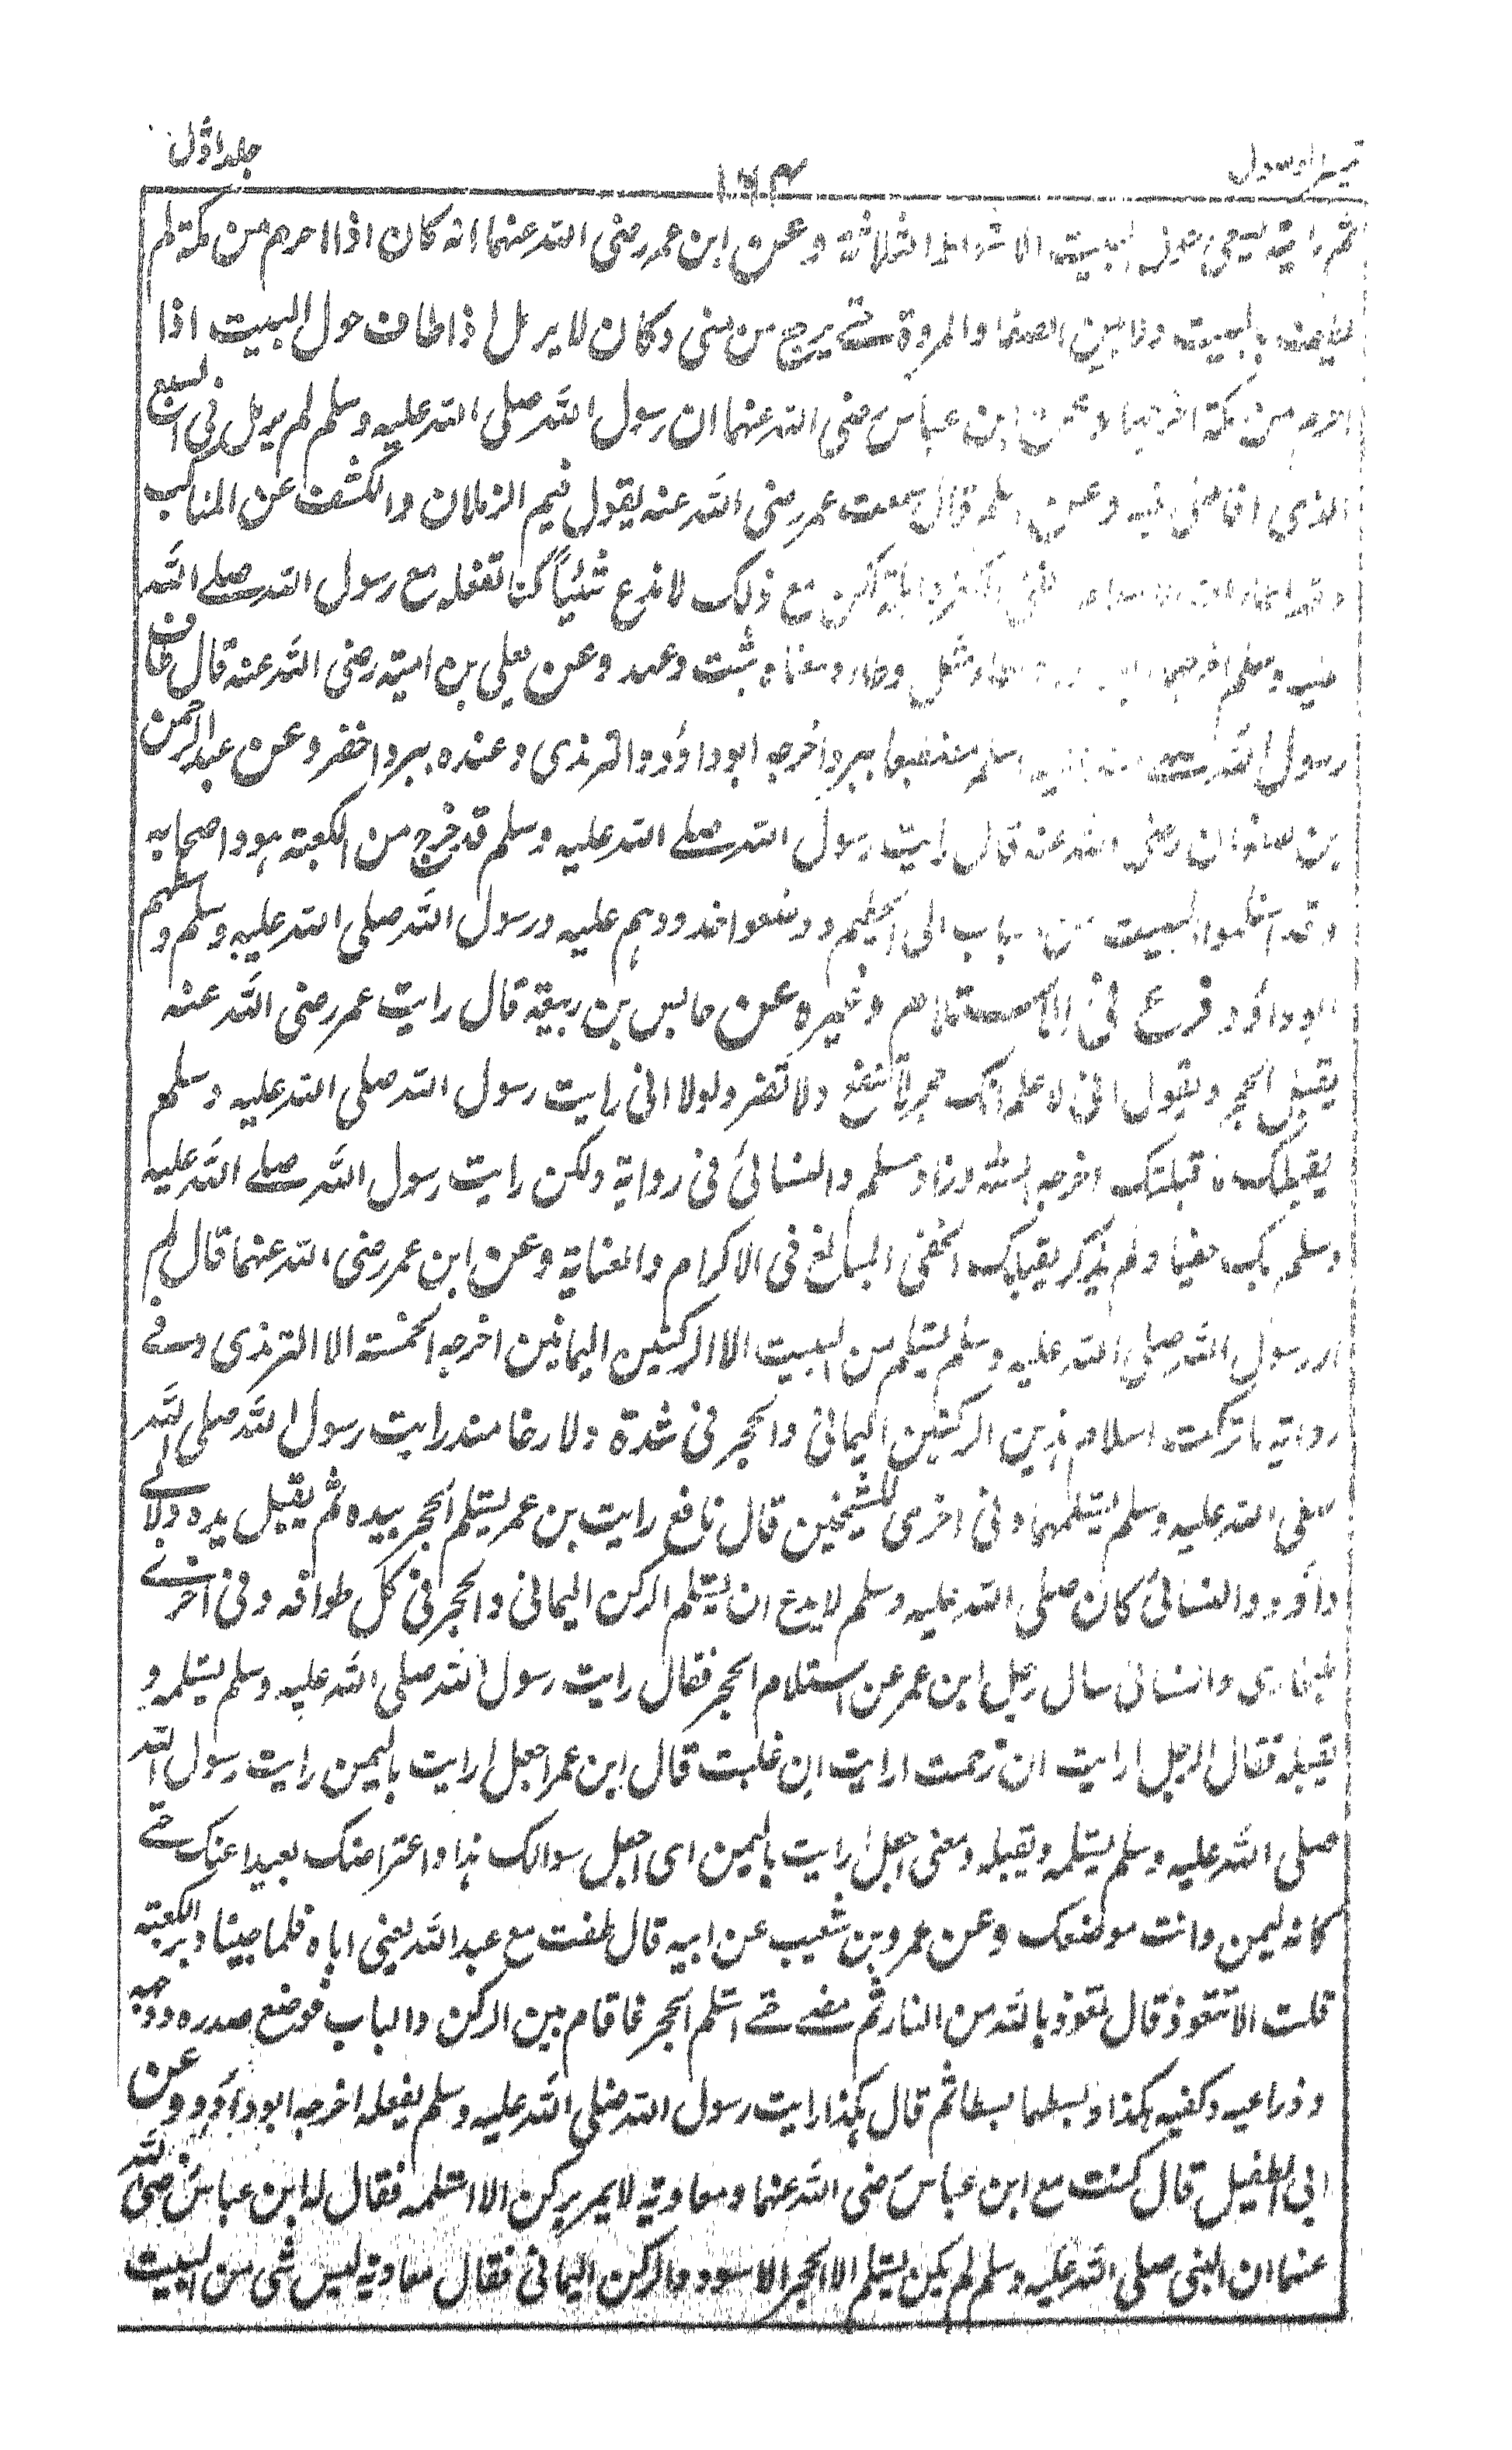 جلد اول
۱۶۴
تیسیر الوصول
ثم رایته یسعی حول البیت الاشواط الثلاثة وعن ابن عمر رضی الله عنهما انه کان اذا احرم من مکة لم
یطف بالبیت ولا بین الصفا والمروة حتے یرجع من منی وکان لا یرمل اذا طاف حول البیت اذا
احرم من مکة اخرجهما وعن ابن عباس رضی الله عنهما ان رسول الله صلی الله علیه وسلم لم یرمل فی السبع
الذی افاض فیه وعن اسلم قال سمعت عمر رضی الله عنه یقول فیم الرملان والکشف عن المناکب
وقد الکفر واهله لکن مع ذلک لا ندع شیئاً کنا نفعله مع رسول الله صلے الله
علیه وسلم اخرجه ومعناه ثبت ومهد وعن یعلی بن امیة رضی الله عنه قال طاف
رسول الله صلے الله علیه وسلم مضطبعا ببرد اخرجه ابوداؤد والترمذی وعنده ببرد اخضر وعن عبدالرحمن
بن صفوان رضی الله عنه قال رایت رسول الله صلے الله علیه وسلم قد خرج من الکعبة هو واصحابه
وقد استلموا البیت من الباب الی الحطیم ووضعوا خدودهم علیه ورسول الله صلی الله علیه وسلم وسطهم
ابوداؤد فرع فی الاستلام وغیره عن عابس بن ربیعة قال رایت عمر رضی الله عنه
یقبل الحجر ویقول انی لاعلم انک حجر لا تنفع ولا تضر ولولا انی رایت رسول الله صلی الله علیه وسلم
یقبلک ما قبلتک اخرجه الستة وزاد مسلم والنسائی فی روایة ولکن رایت رسول الله صلے الله علیه
وسلم بک حفیا ولم یذکر یقبلک الحفی المبالغ فی الاکرام والعنایة وعن ابن عمر رضی الله عنهما قال لم
ار رسول الله صلی الله علیه وسلم یستلم من البیت الا الرکنین الیمانیین اخرجه الخمسة الا الترمذی وفے
روایة ما ترکت استلام هذین الرکنین الیمانی والحجر فی شدة ولا رخا منذ رایت رسول الله صلی الله
صلی الله علیه وسلم یستلمهما وفی اخری للشیخین قال نافع رایت بن عمر یستلم الحجر بیده ثم یقبل یده ولابے
داؤد والنسائی کان صلی الله علیه وسلم لا یدع ان یستلم الرکن الیمانی والحجر فی کل طوافه وفی اخرے
للبخاری والنسائی سال رجل ابن عمر عن استلام الحجر فقال رایت رسول الله صلی الله علیه وسلم یستلمه و
یقبله فقال الرجل ارایت ان زحمت ارایت ان غلبت قال ابن عمر اجعل ارایت بالیمن رایت رسول الله
صلی الله علیه وسلم یستلمه ویقبله ومعنی اجعل ارایت بالیمن ای اجعل سوالک هذا واعتراضک بعیدا عنک حتے
کانه لیمن وانت موضعک وعن عمرو بن شعیب عن ابیه قال طفت مع عبدالله یعنی اباه فلما جینا دبر الکعبة
قلت الا تتعوذ قال نعوذ بالله من النار ثم مضے حتے استلم الحجر فاقام بین الرکن والباب فوضع صدره ووجهه
وذراعیه وکفیه هکذا وبسطهما بسطا ثم قال هکذا رایت رسول الله صلی الله علیه وسلم یفعله اخرجه ابوداؤد وعن
ابی الطفیل قال کنت مع ابن عباس رضی الله عنهما ومعاویة لا یمر برکن الا استلمه فقال له ابن عباس رضی الله
عنهما ان النبی صلی الله علیه وسلم لم یکن یستلم الا الحجر الاسود والرکن الیمانی فقال معاویة لیس شی من البیت